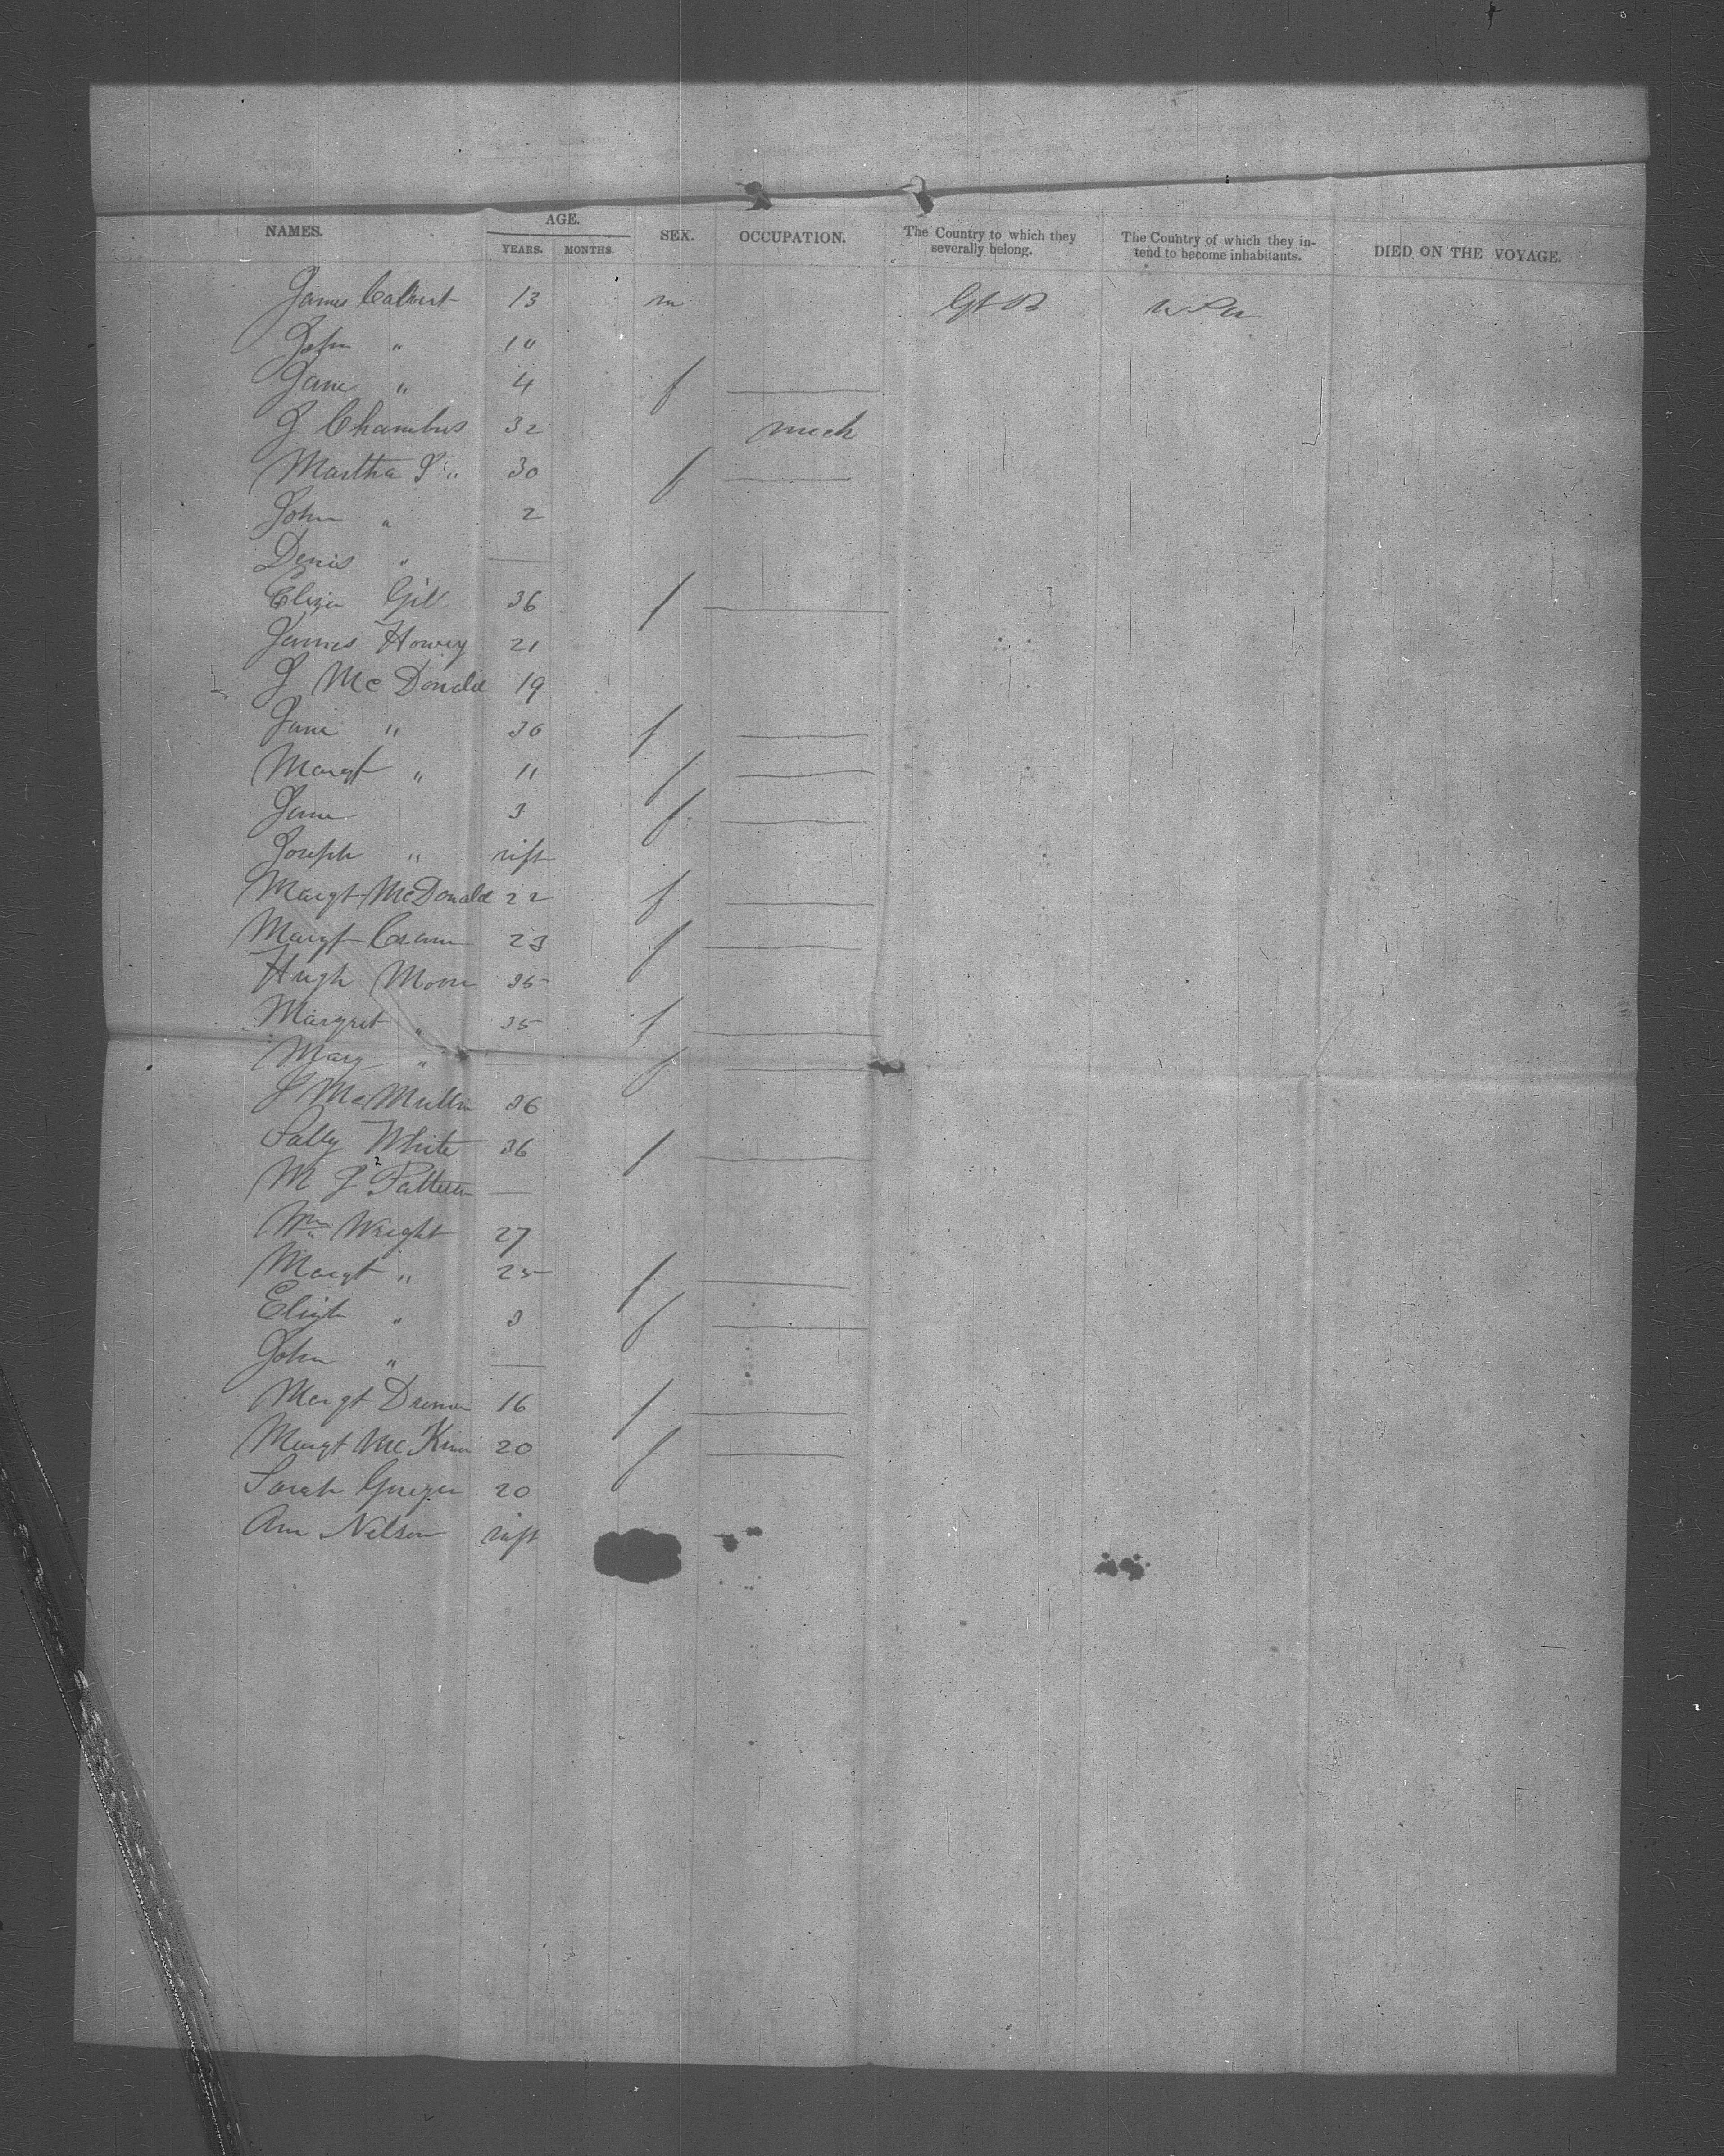 NAMES. AGE. YEARS. MONTHS SEX. OCCUPATION. The Country to which they severally belong. The Country of which they in-tend to become inhabitants. DIED ON THE VOYAGE.
James Calvert 13 m Gt B
John " 10
Jane " 4 f
J Chambers 32 mech
Martha J " 30 f
John " 2
Denis "
Eliza Gill 36 f
James Howey 21
J McDonald 19
Jane " 30 f
Margt " 11 f
Jane 3 f
Joseph " inft
Margt McDonald 22 f
Margt 23 f
Hugh Moore 35
Margret " 35 f
Mary " f
J McMullin 36
Sally White 36 f
M J Patterson
Wm Wright 27
Margt " 25 f
" 3 f
John "
Margt 16 f
Margt 20 f
Sarah 20
Ann Nelson inft